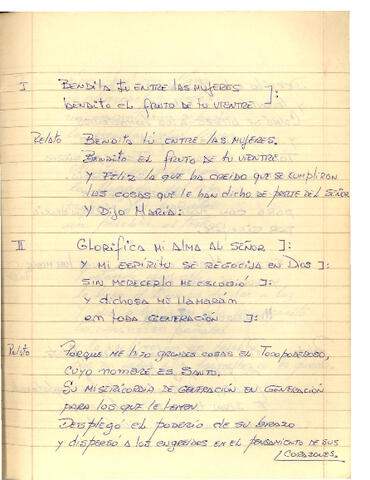 I BENDITA tú ENTRE LAS MUJERES
BENDITO EL FRUTO DE TU VIENTRE ]:
Relato BENDITA tú ENTRE-LAS MUJERES.
BENDITO EL FRUTO DE TU VIENTRE
Y FELIZ LA QUE HA CREIDO QUE SE CUMPLIRAN
LAS COSAS QUE LE HAN DICHO DE PARTE DEL SEÑOR
Y DIJO MARIA:
II GLORIFICA MI ALMA AL SEÑOR ]:
Y MI ESPIRITU SE REGOCIJA EN DIOS ]:
SIN MERECERLO ME ESCOGIÓ ]:
Y DICHOSA ME LLAMARÁN
EM TODA GENERACIÓN ]:
Relato PORQUE ME HIZO GRANDES COSAS EL TODOPODEROSO,
CUYO NOMBRE ES SANTO.
SU MISERICORDIA DE GENERACIÓN EN GENERACIÓN
PARA LOS QUE LE TEMEN.
DESPLEGÓ EL PODERIO DE SU BRAZO
Y DISPERSÓ A LOS ENGREIDOS EN EL PENSAMIENTO DE SUS
/ CORAZONES.